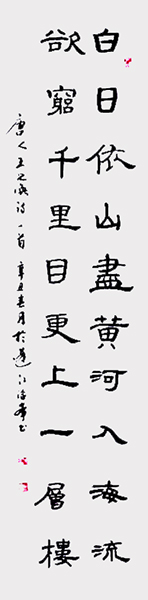 白日依山盡黃河入海流
欲窮千里目更上一層樓
唐人王之渙詩一首辛丑春月於蓮